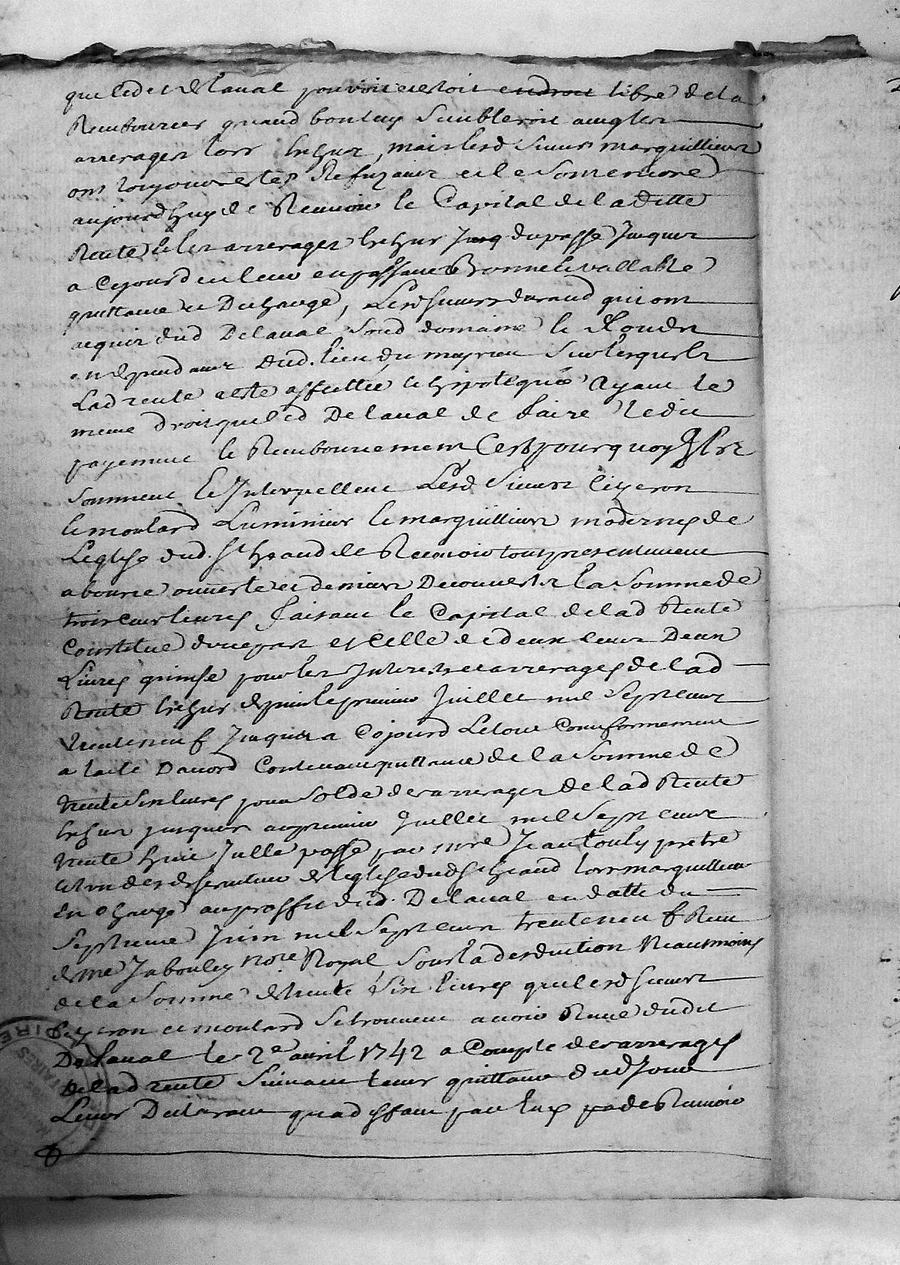 que ledit Delaval pouvoit et estoit endroit libre de la
Rembourcer quand bon luy sembleroit avec les
arrerages lors echeux, mais lesd sieurs marguilliers
ont toujours estes Refuzans et le sont encore
aujourdhuy de Recevoir le Capital de la ditte
Rente et les arrerages echeux jusques
a cejourd en leur en passant bonne et vallable
quittance et Decharge, Lesd sieurs durand qui ont
acquis dud Delaval Send domaine et fonds
en dependans Dud. lieu du sur lesquels
Lad rente a este affectée et hipotequée Ayant le
meme droit que led Delaval de faire ledit
payement et Rembourcement Cest pourquoy Ils
somment et Interpellent Lesd Sieurs Leyeron
et moulard Luminiers et marguilliers modernes de
Leglise dud. St heand de Recevoir tout presentement
a bource ouverte et deniers Decouverts la Somme de
trois cent livres faisant le Capital de lad Rente
Constitué dune part et Celle de deux cent Deux
Livres quinse pour les Interests et arrerages de lad
Rente echeus depuis le premier Juillet mil Sept cent
trente neuf Jusques a Cejourd Le tout Conformement
a lacte Dacord Contenant quittance de la Somme de
trente six livres pour Solde des arrerages de lad Rente
echeus jusques au premier Juillet mil Sept cent
trente huit Jcelle passé par mre Jean touly pretre
et lun des de Leglise dud St heand lors marguillier
En Charge au proffit dud. Delaval en datte du
Septieme Juin mil Sept cent trente neuf Receu
de me Jabouley nore Royal Sous la desduction Neansmoins
de la Somme de trente Six livres que lesd sieurs
Leyeron et moulard Se trouvent avoir Receu dudit
Delaval le 2e avril 1742 a Compte des arrerages
de lad rente Suivant leurs quittance dud Jour
Leurs Declarant qua deffaut par Eux de Recevoir